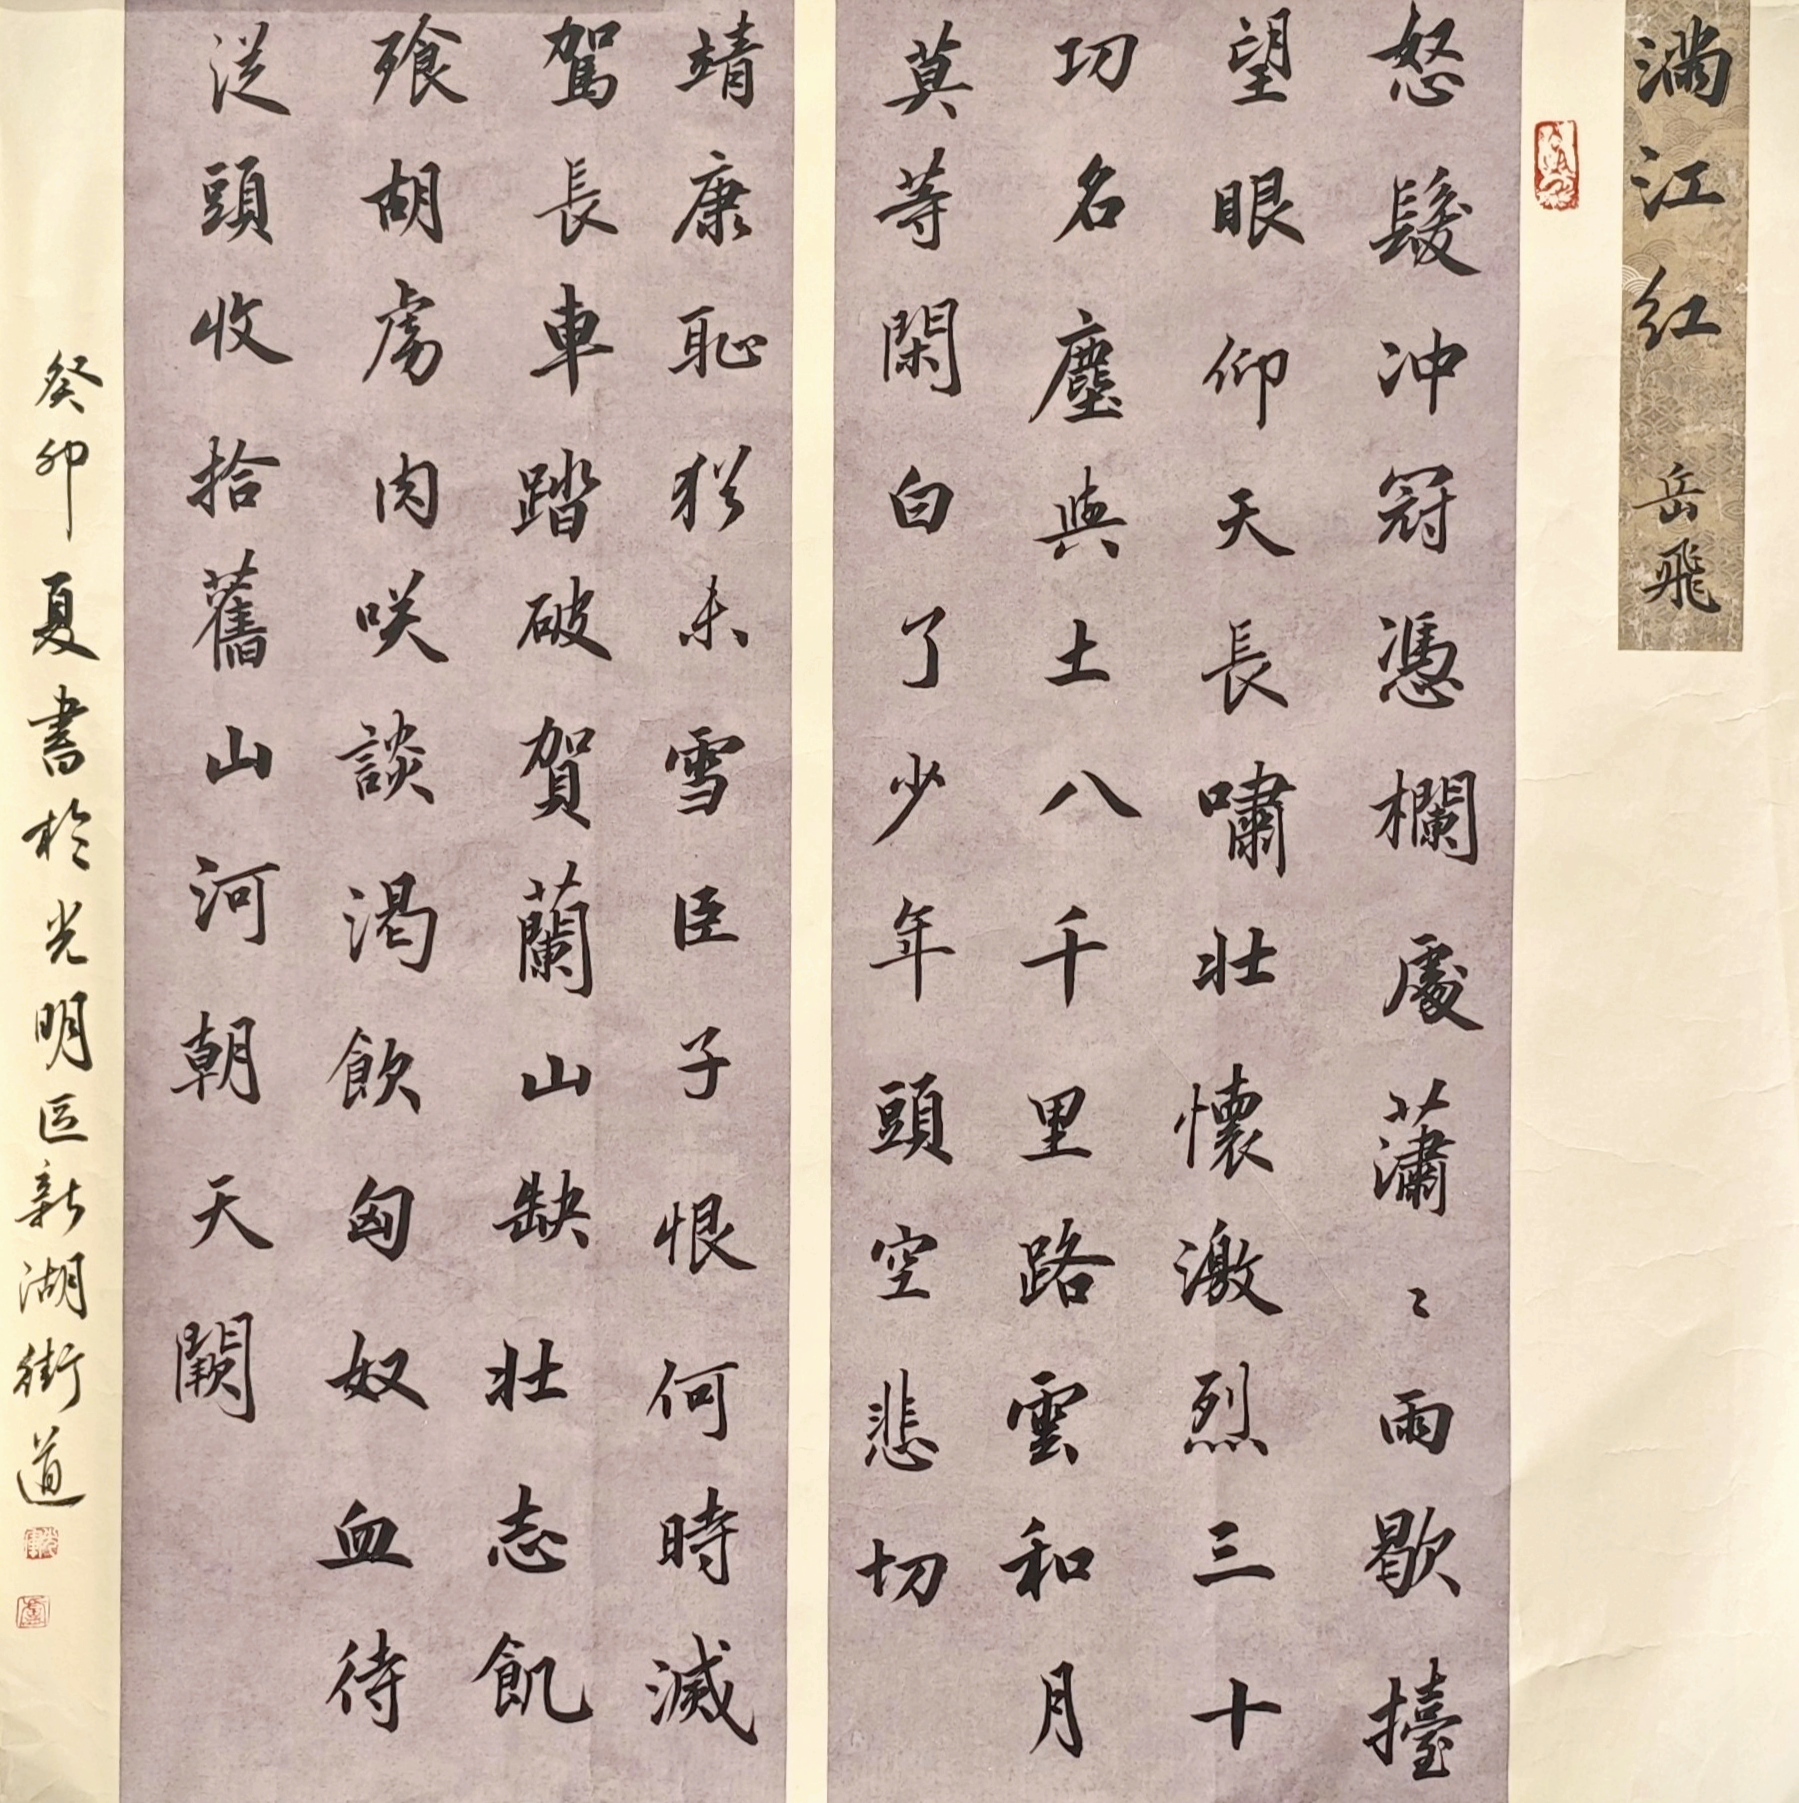 满江红 岳飛
怒髮冲冠憑欄處蕭〻雨歇擡
望眼仰天長嘯壯懷激烈三十
功名塵與土八千里路雲和月
莫等閑白了少年頭空悲切
靖康恥猶未雪臣子恨何時滅
駕長車踏破賀蘭山缺壯志飢
飧胡虜肉咲談渴飲匈奴血待
從頭收拾舊山河朝天闕
癸卯夏書於光明区新湖街道